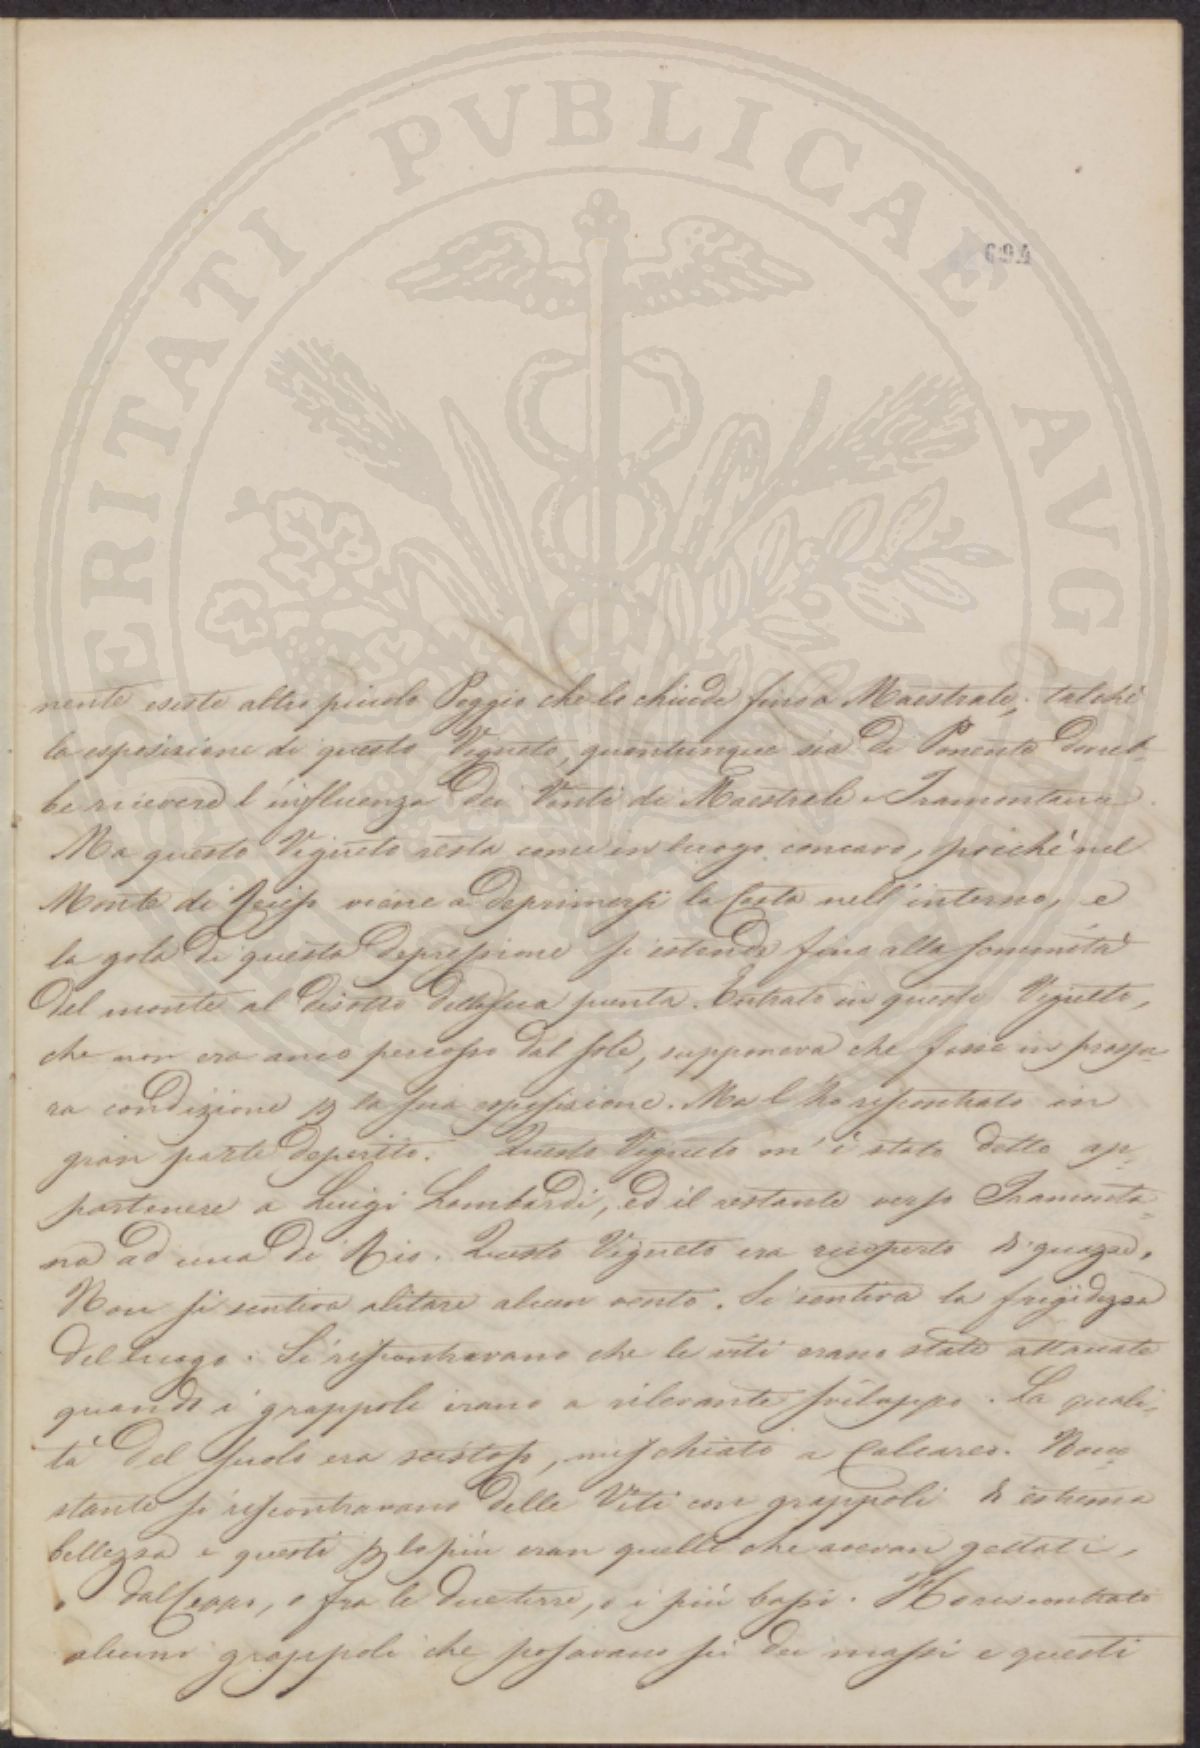 PROSPERITATI PVBLICAE AVGENDAE
694
nente esiste altro piccolo Poggio che lo chiude fino a Maestrale; talchè
la esposizione di questo Vigneto, quantunque sia di Ponente dovreb-
be ricevere l'influenza dei Venti di Maestrale e Tramontana.
Ma questo Vigneto resta come in luogo concavo, poichè nel
Monte di viene a deprimersi la Costa nell'interno, e
la gola di questa depressione si estende fino alla sommità
del monte al disotto della sua punta. Entrato in questo Vigneto,
che non era anco percosso dal sole, supponeva che fosse in prospe-
ra condizione p la sua esposizione. Ma l'ho riscontrato in
gran parte deperito. Questo Vigneto m'è stato detto ap-
partenere a Luigi Lombardi, ed il restante verso Tramonta-
na ad uno di Rio. Questo Vigneto era ricoperto di guazza.
Non si sentiva alitare alcun vento. Si sentiva la frigidezza
del luogo. Si riscontravano che le viti erano state attaccate
quando i grappoli erano a rilevante sviluppo. La quali-
tà del suolo era scistoso, mischiato a Calcareo. Nono-
stante si riscontravano delle Viti con grappoli di estrema
bellezza e questi p lo più eran quelli che avevan gettati,
o dal Ceppo, o fra le due terre, o i più bassi. Ho riscontrato
alcuni grappoli che posavano su dei massi e questi